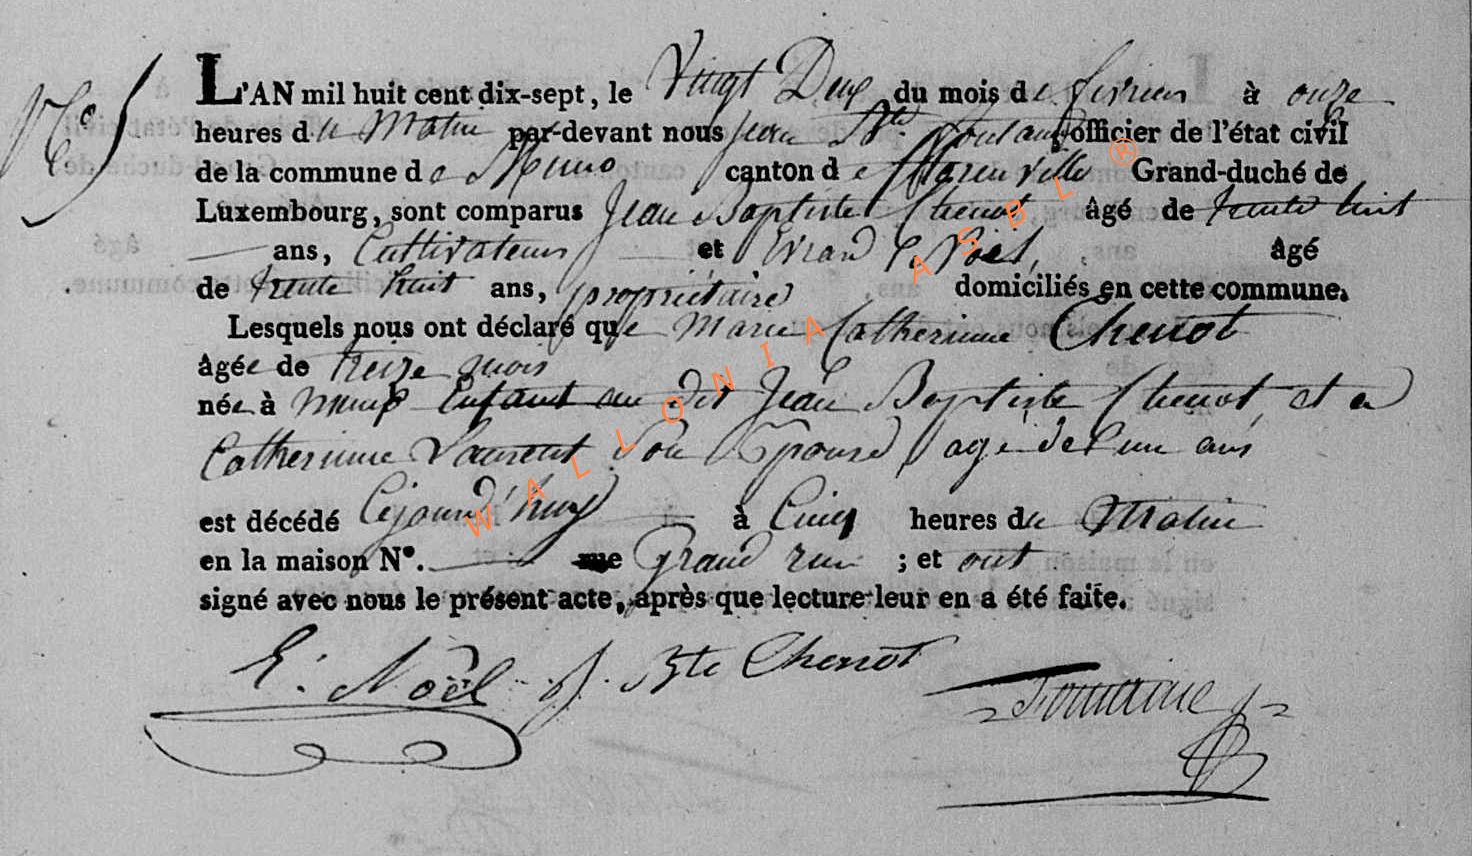 N.o 5
L'AN mil huit cent dix-sept, le Vingt Deux du mois de fevrier à onze
heures du Matin par-devant nous Jean Bte. officier de l'état civil
de la commune de Muno canton de florenville Grand-duché de
Luxembourg, sont comparus Jean Baptiste Chenot âgé de trente huit
ans, Cultivateur et Evrard Noël, âgé
de trente huit ans, propriétaire domiciliés en cette commune.
Lesquels nous ont déclaré que Marie Catherinne Chenot
âgée de treize mois
née à Muno Enfant au dit Jean Baptiste Chenot, et a
Catherinne Laurent son Epouse agé de ans
est décédé Cejourd'huy à Cinq heures du Matin
en la maison N°. rue Grand rue ; et ont
signé avec nous le présent acte, après que lecture leur en a été faite.
E. Noël J. Bte Chenot Fontaine
WALLONIA ASBL ®